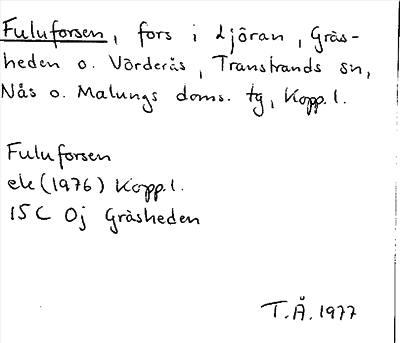 Fuluforsen, fors i Ljöran, Gräs-
heden o. Vörderås, Transtrands sn,
Nås o. Malungs doms. tg, Kopp. l.
Fuluforsen
ek (1976) Kopp. l.
15 C 0j Gräsheden
T.Å. 1977